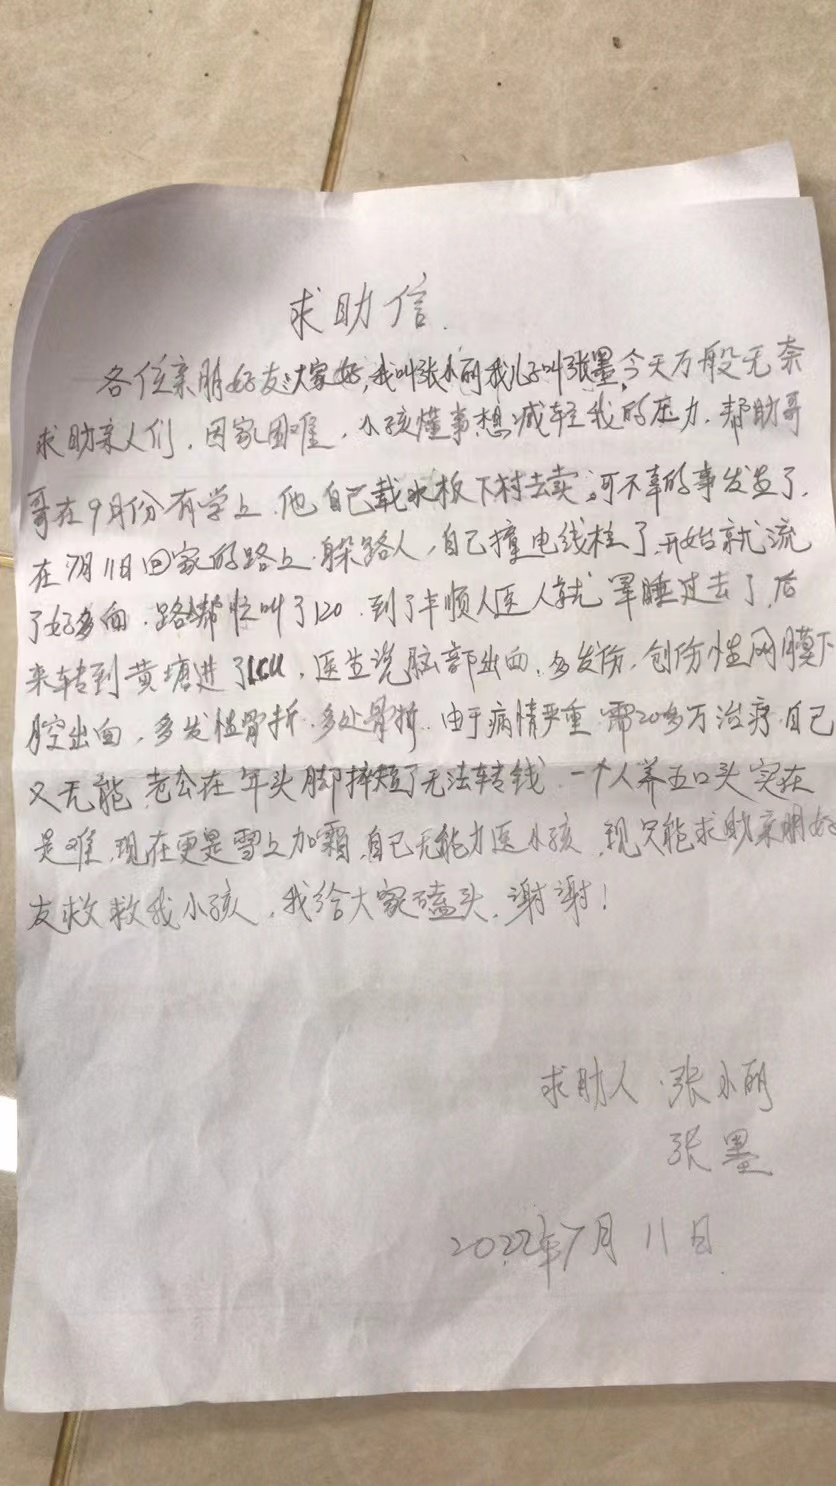 求助信.
各位亲朋好友:大家好,我叫张小丽我儿子叫张墨,今天万般无奈
求助亲人们,因家困难,小孩懂事想减轻我的压力,帮助哥
哥在9月份有学上,他自己载水板下村去卖,可不幸的事发生了,
在7月11日回家的路上,躲路人,自己撞电线柱了,开始就流
了好多血,路帮忙叫了120,到了丰顺人医人就晕睡过去了,后
来转到黄塘进了ICU,医生说脑部出血,多发伤,创伤性网膜下
腔出血,多发性骨折,多处骨折.由于病情严重,需20多万治疗,自己
又无能,老公在年头脚摔短了无法转钱,一个人养五口头实在
是难,现在更是雪上加霜,自己无能力医小孩,现只能求助亲朋好
友救救我小孩,我给大家磕头,谢谢!
求助人:张小丽
张墨
2022年7月11日